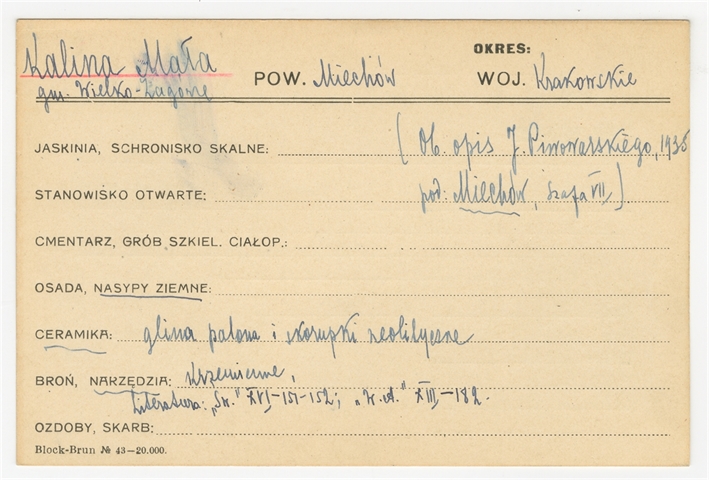 Kalina Mała
gm. Wielko-Zagórze
OKRES:
POW. Miechów WOJ. Krakowskie
JASKINIA, SCHRONISKO SKALNE: (Ob. opis J. Piwowarskiego, 1935
STANOWISKO OTWARTE: pod: Miechów, szafa VII)
CMENTARZ, GRÓB SZKIEL. CIAŁOP.:
OSADA, NASYPY ZIEMNE:
CERAMIKA: glina palona i skorupki neolityczne
BROŃ, NARZĘDZIA: Krzemienne,
Literatura: „Św." XVI-151-152; „W.A." XIII-182.
OZDOBY, SKARB:
Block-Brun № 43—20.000.